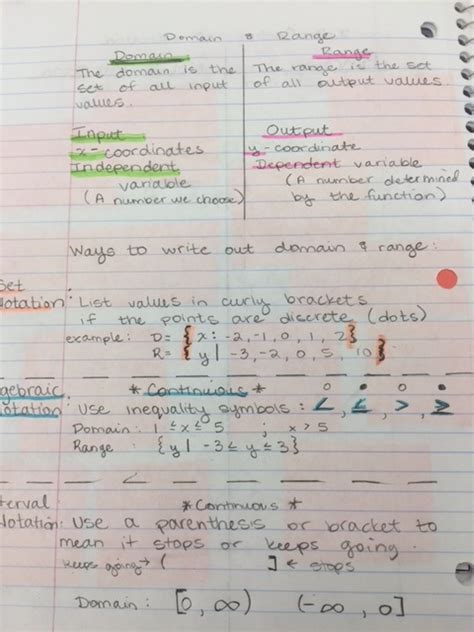 Domain & Range
Domain
The domain is the
set of all input
values.
Range
The range is the set
of all output values.
Input
x-coordinates
Independent
variable
(A number we choose)
Output
y-coordinate
Dependent variable
(A number determined
by the function)
Ways to write out domain & range:
Set
Notation: List values in curly brackets
if the points are discrete (dots)
example: D= {x: -2,-1,0,1,2}
R= {y| -3,-2,0,5,10}
gebraic *Continuous* ○ ● ○ ●
otation: Use inequality symbols: <, ≤, >, ≥
Domain: 1 ≤ x ≤ 5 ; x > 5
Range: {y| -3 ≤ y ≤ 3}
terval *Continuous*
Notation: Use a parenthesis or bracket to
mean it stops or keeps going.
keeps going → ( ] ← stops
Domain: [0, ∞) (-∞, 0]